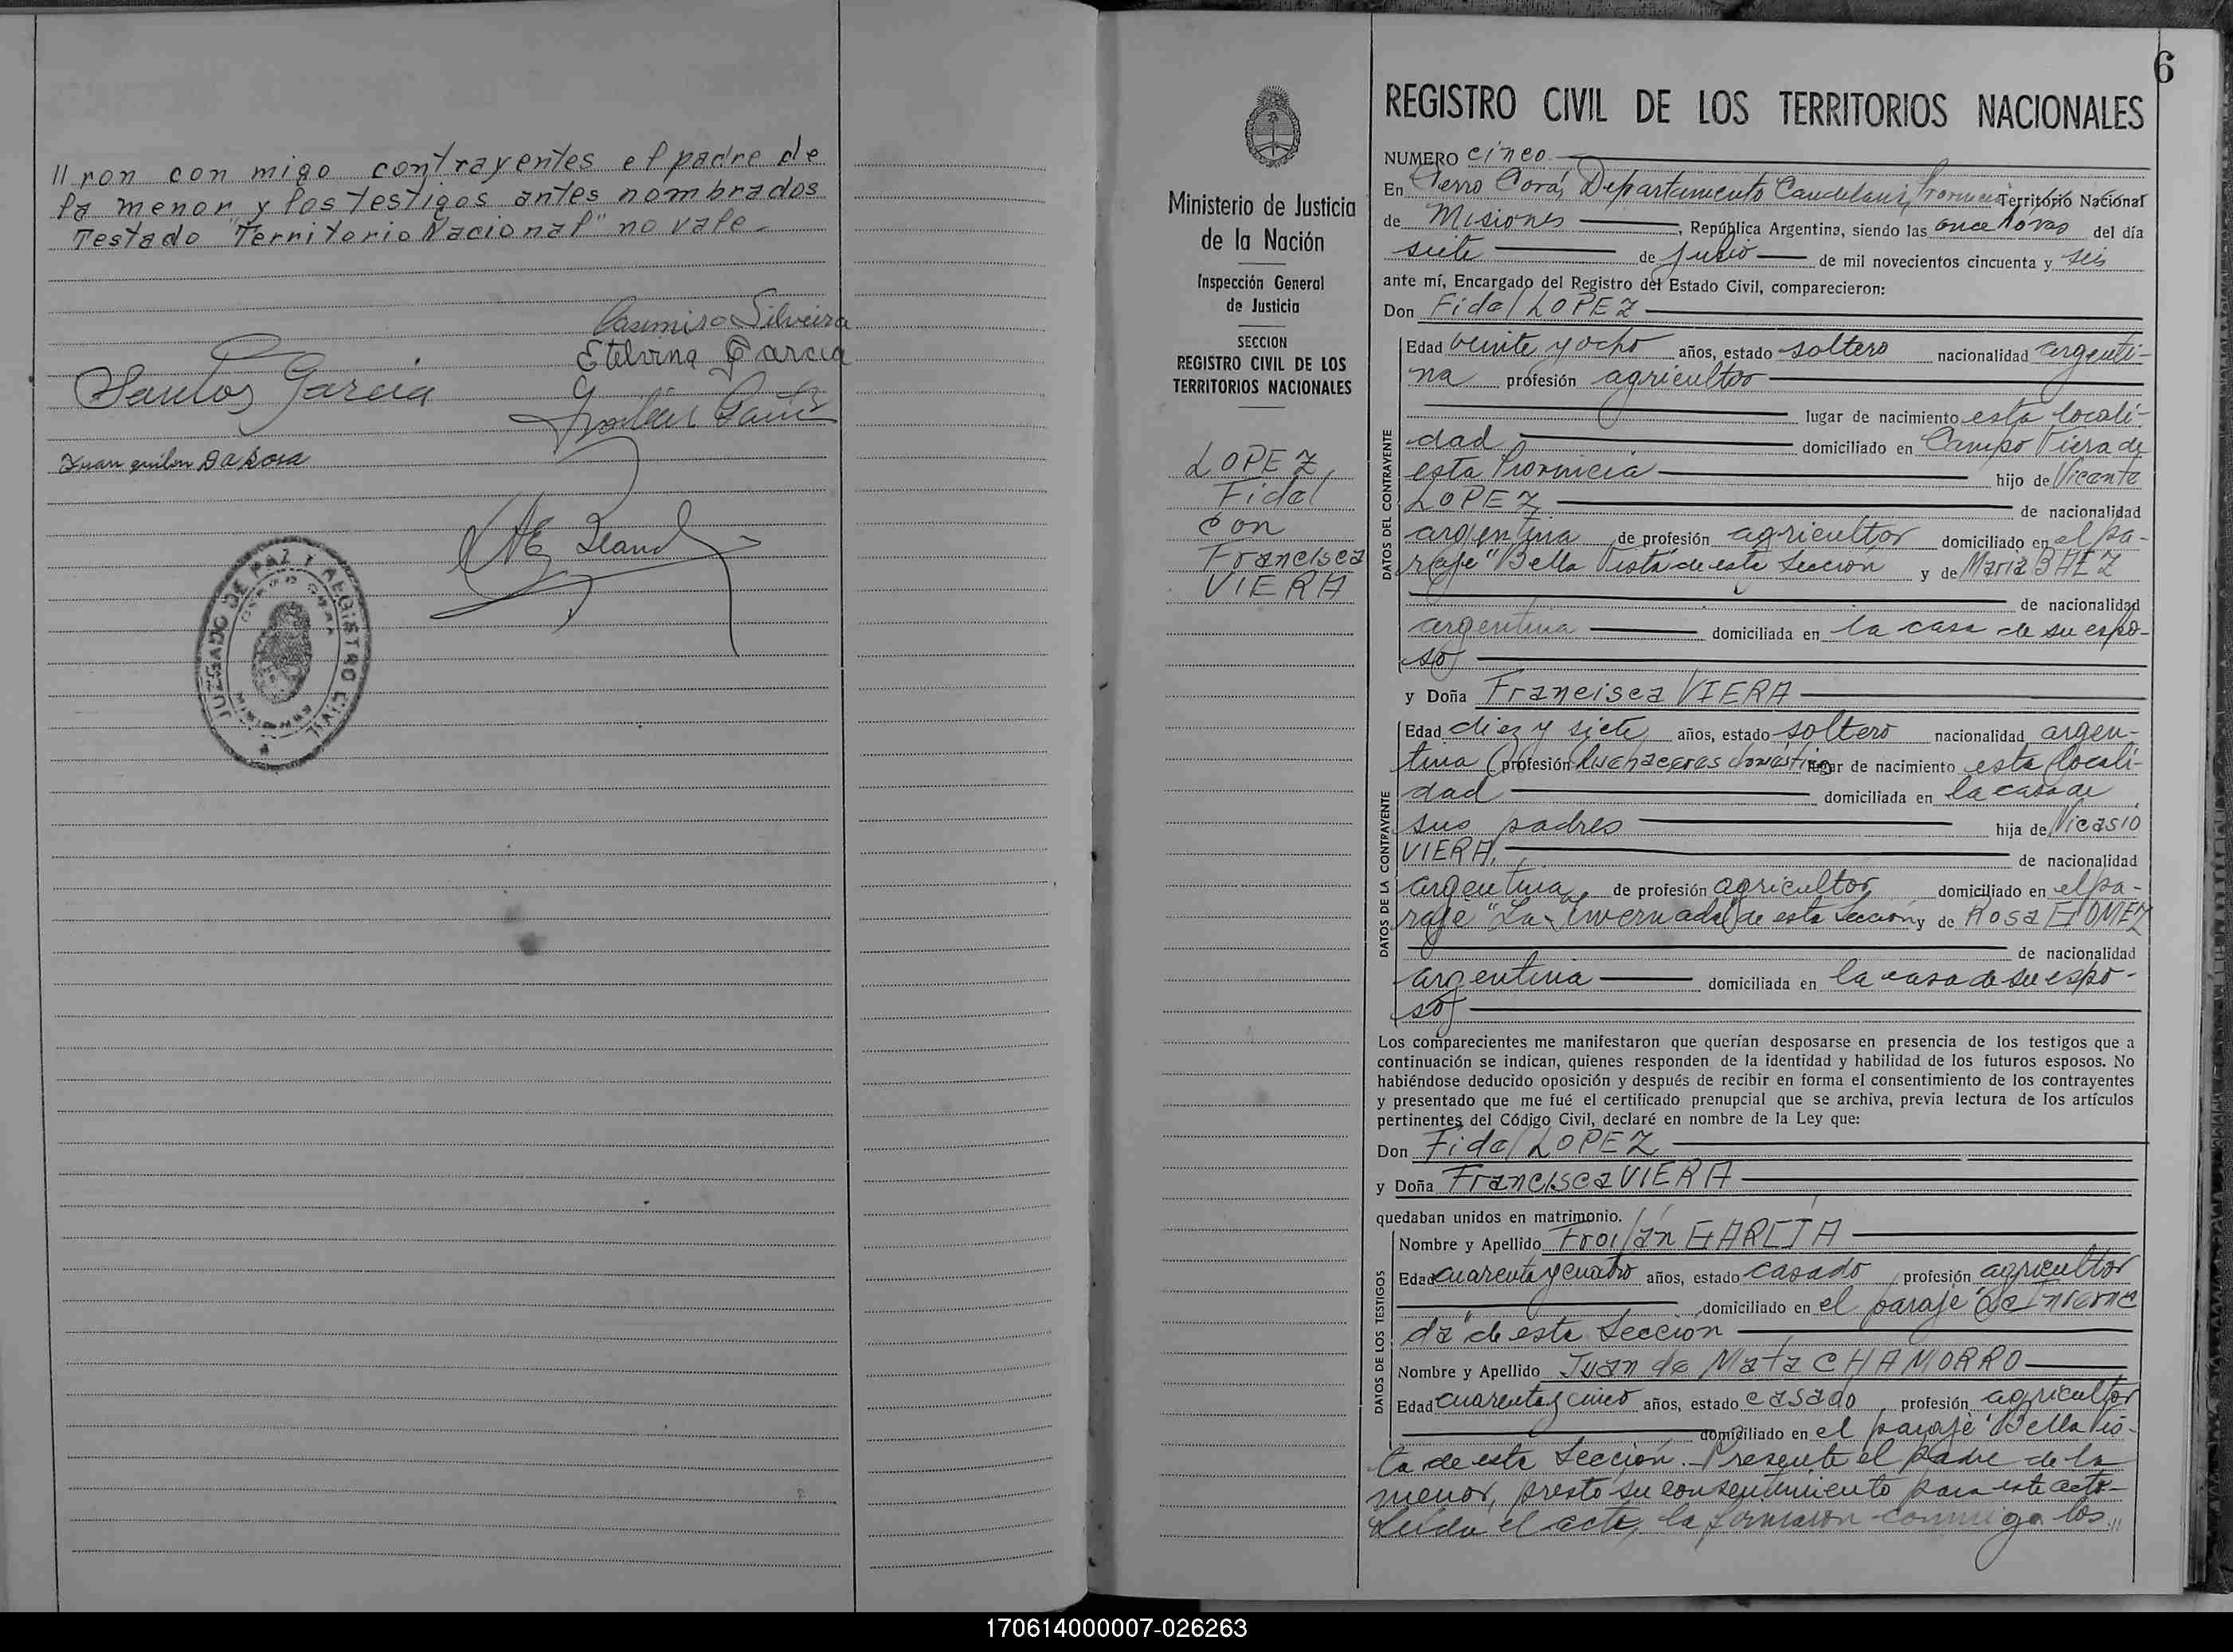 //ron con migo contrayentes el padre de
la menor y los testigos antes nombrados
Testado "Territorio Nacional" no vale.-
Casimiro Silveira
Etelvina Garcia
Santos Garcia
Juan
JUZGADO DE PAZ Y REGISTRO CIVIL
6
REGISTRO CIVIL DE LOS TERRITORIOS NACIONALES
NUMERO cinco.
En Cerro Corá, Departamento Candelaria, Provincia Territorio Nacional
de Misiones, República Argentina, siendo las once horas del día
siete de Julio de mil novecientos cincuenta y seis
ante mí, Encargado del Registro del Estado Civil, comparecieron:
Don Fidel LOPEZ
Edad veinte y ocho años, estado soltero nacionalidad argenti-
na profesión agricultor
lugar de nacimiento esta locali-
dad domiciliado en Campo Viera de
esta Provincia hijo de Vicente
LOPEZ de nacionalidad
argentina de profesión agricultor domiciliado en el pa-
raje "Bella Vista de esta Sección y de Maria BAEZ
de nacionalidad
argentina domiciliada en la casa de su espo-
so
y Doña Francisca VIERA
Edad diez y siete años, estado soltero nacionalidad argen-
tina profesión quehaceres domésticos lugar de nacimiento esta locali-
dad domiciliada en la casa de
sus padres hija de Nicasio
VIERA, de nacionalidad
argentina, de profesión agricultor domiciliado en el pa-
raje "La Invernada" de esta Sección y de Rosa GOMEZ
de nacionalidad
argentina domiciliada en la casa de su espo-
so
Los comparecientes me manifestaron que querían desposarse en presencia de los testigos que a
continuación se indican, quienes responden de la identidad y habilidad de los futuros esposos. No
habiéndose deducido oposición y después de recibir en forma el consentimiento de los contrayentes
y presentado que me fué el certificado prenupcial que se archiva, previa lectura de los artículos
pertinentes del Código Civil, declaré en nombre de la Ley que:
Don Fidel LOPEZ
y Doña Francisca VIERA
quedaban unidos en matrimonio.
Nombre y Apellido Froilán GARCIA
Edad cuarenta y cuatro años, estado casado profesión agricultor
domiciliado en el paraje "La Inverna
da" de esta Sección
Nombre y Apellido Juan de Mata CHAMORRO
Edad cuarenta y cinco años, estado casado profesión agricultor
domiciliado en el paraje "Bella Vis-
ta de esta Sección.- Presente el padre de la
menor, prestó su consentimiento para este acto-
Leída el acta, la firmaron conmigo los //
DATOS DEL CONTRAYENTE
DATOS DE LA CONTRAYENTE
DATOS DE LOS TESTIGOS
Ministerio de Justicia
de la Nación
Inspección General
de Justicia
SECCION
REGISTRO CIVIL DE LOS
TERRITORIOS NACIONALES
LOPEZ,
Fidel
con
Francisca
VIERA
170614000007-026263